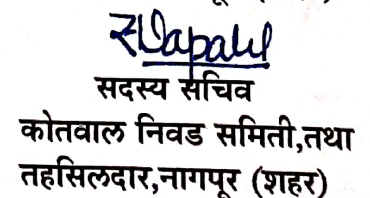 सदस्य सचिव
कोतवाल निवड समिती,तथा
तहसिलदार,नागपूर (शहर)